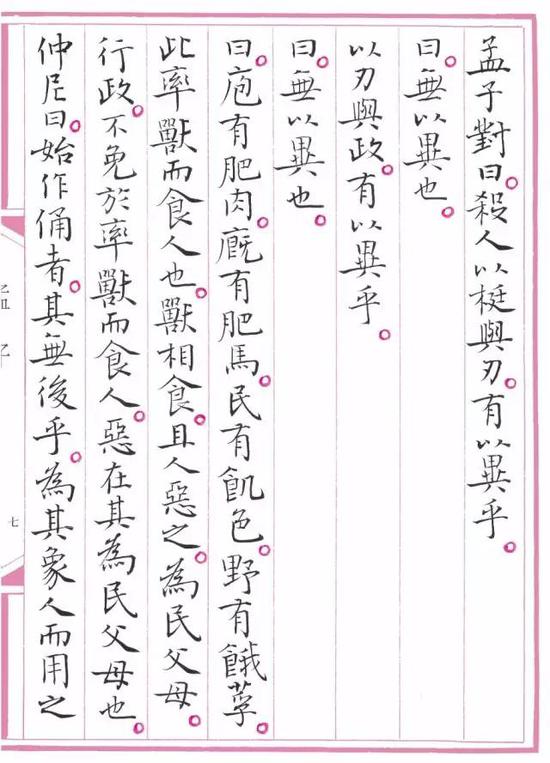 孟子對曰。殺人以梃與刃。有以異乎。
曰。無以異也。
以刃與政。有以異乎。
曰。無以異也。
曰。庖有肥肉。廐有肥馬。民有飢色。野有餓莩。
此率獸而食人也。獸相食。且人惡之。為民父母。
行政。不免於率獸而食人。惡在其為民父母也。
仲尼曰。始作俑者。其無後乎。為其象人而用之
七